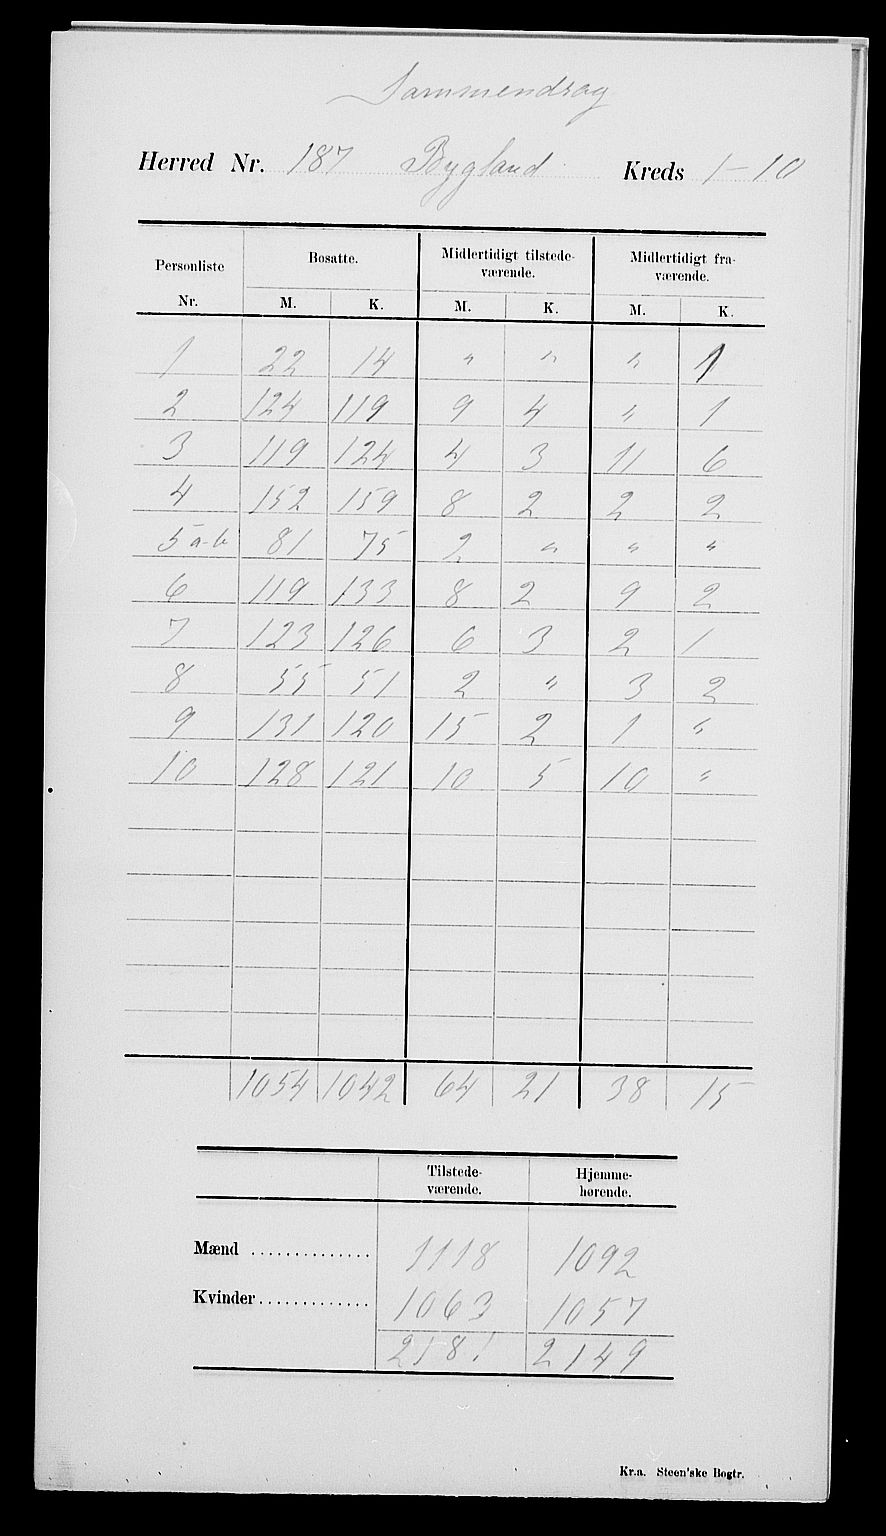 Sammendrag
Herred Nr. 187 Bygland Kreds 1-10
Personliste Nr. Bosatte. Midlertidigt tilstede-værende. Midlertidigt fra-værende.
M. K. M. K. M. K.
1 22 14 " " " 1
2 124 119 9 4 " 1
3 119 124 4 3 11 6
4 152 159 8 2 2 2
5 a-b 81 75 2 " " "
6 119 133 8 2 9 2
7 123 126 6 3 2 1
8 55 51 2 " 3 2
9 131 120 15 2 1 "
10 128 121 10 5 10 "
1054 1042 64 21 38 15
Tilstede-værende. Hjemme-hørende.
Mænd .............. 1118 1092
Kvinder ............. 1063 1057
2181 2149
Kr.a. Steen'ske Bogtr.